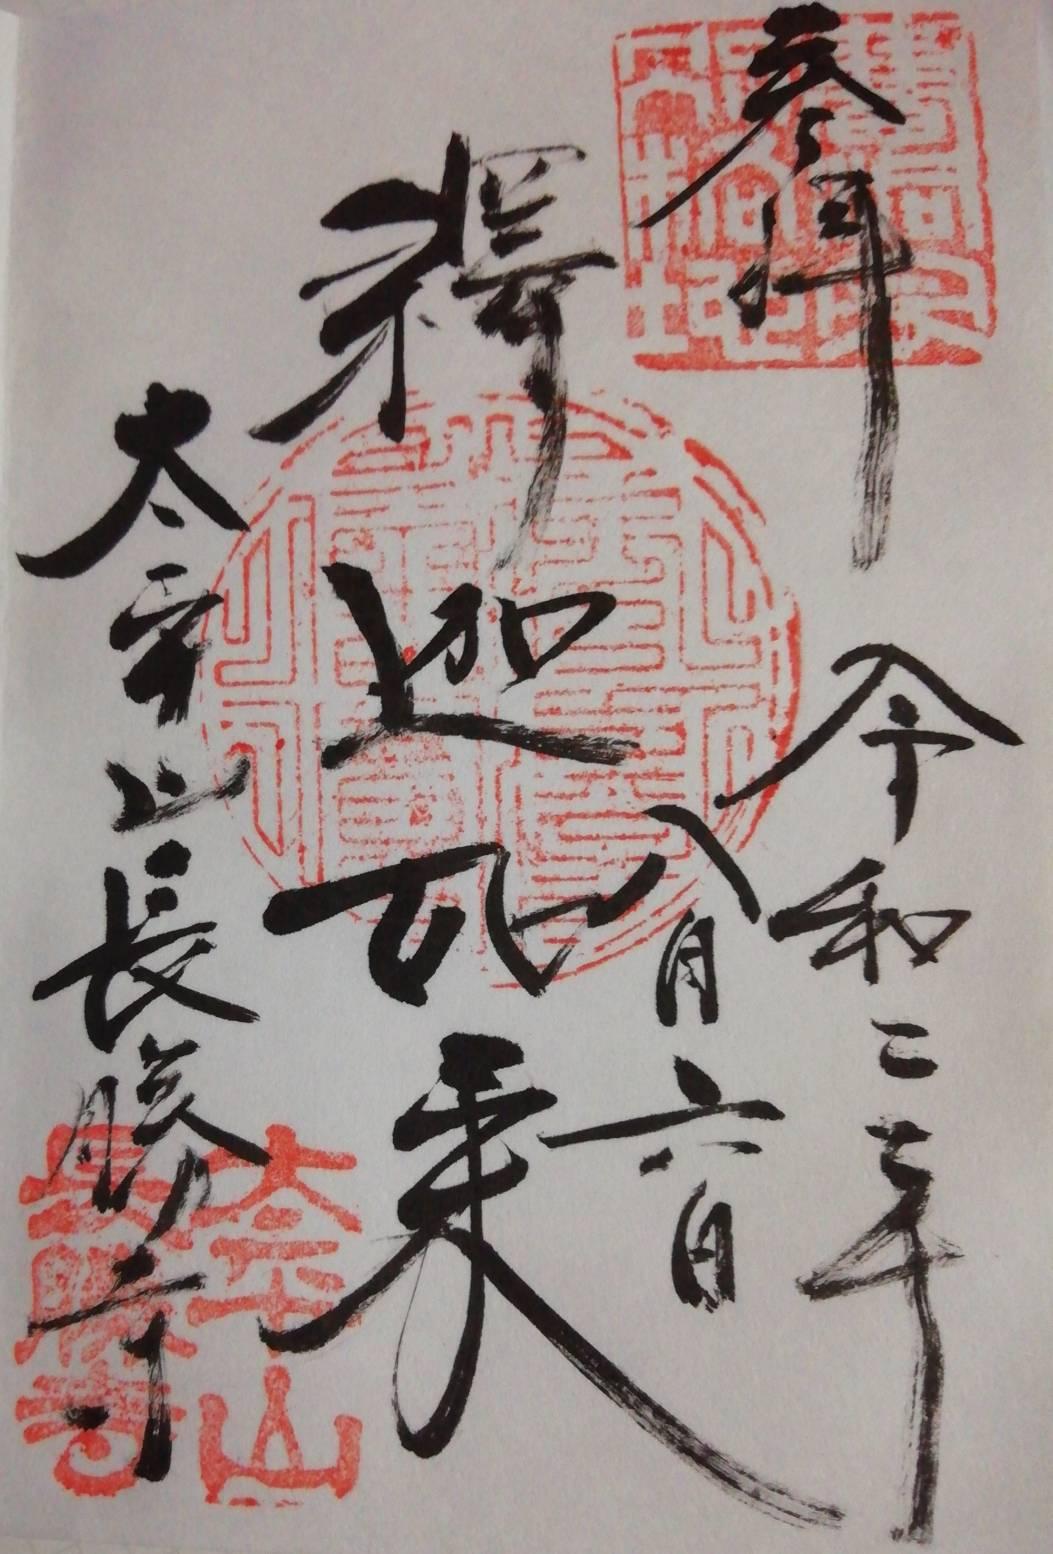 参拝
令和二年
八月六日
釋迦如来
太平山長勝寺
太平山
長勝寺